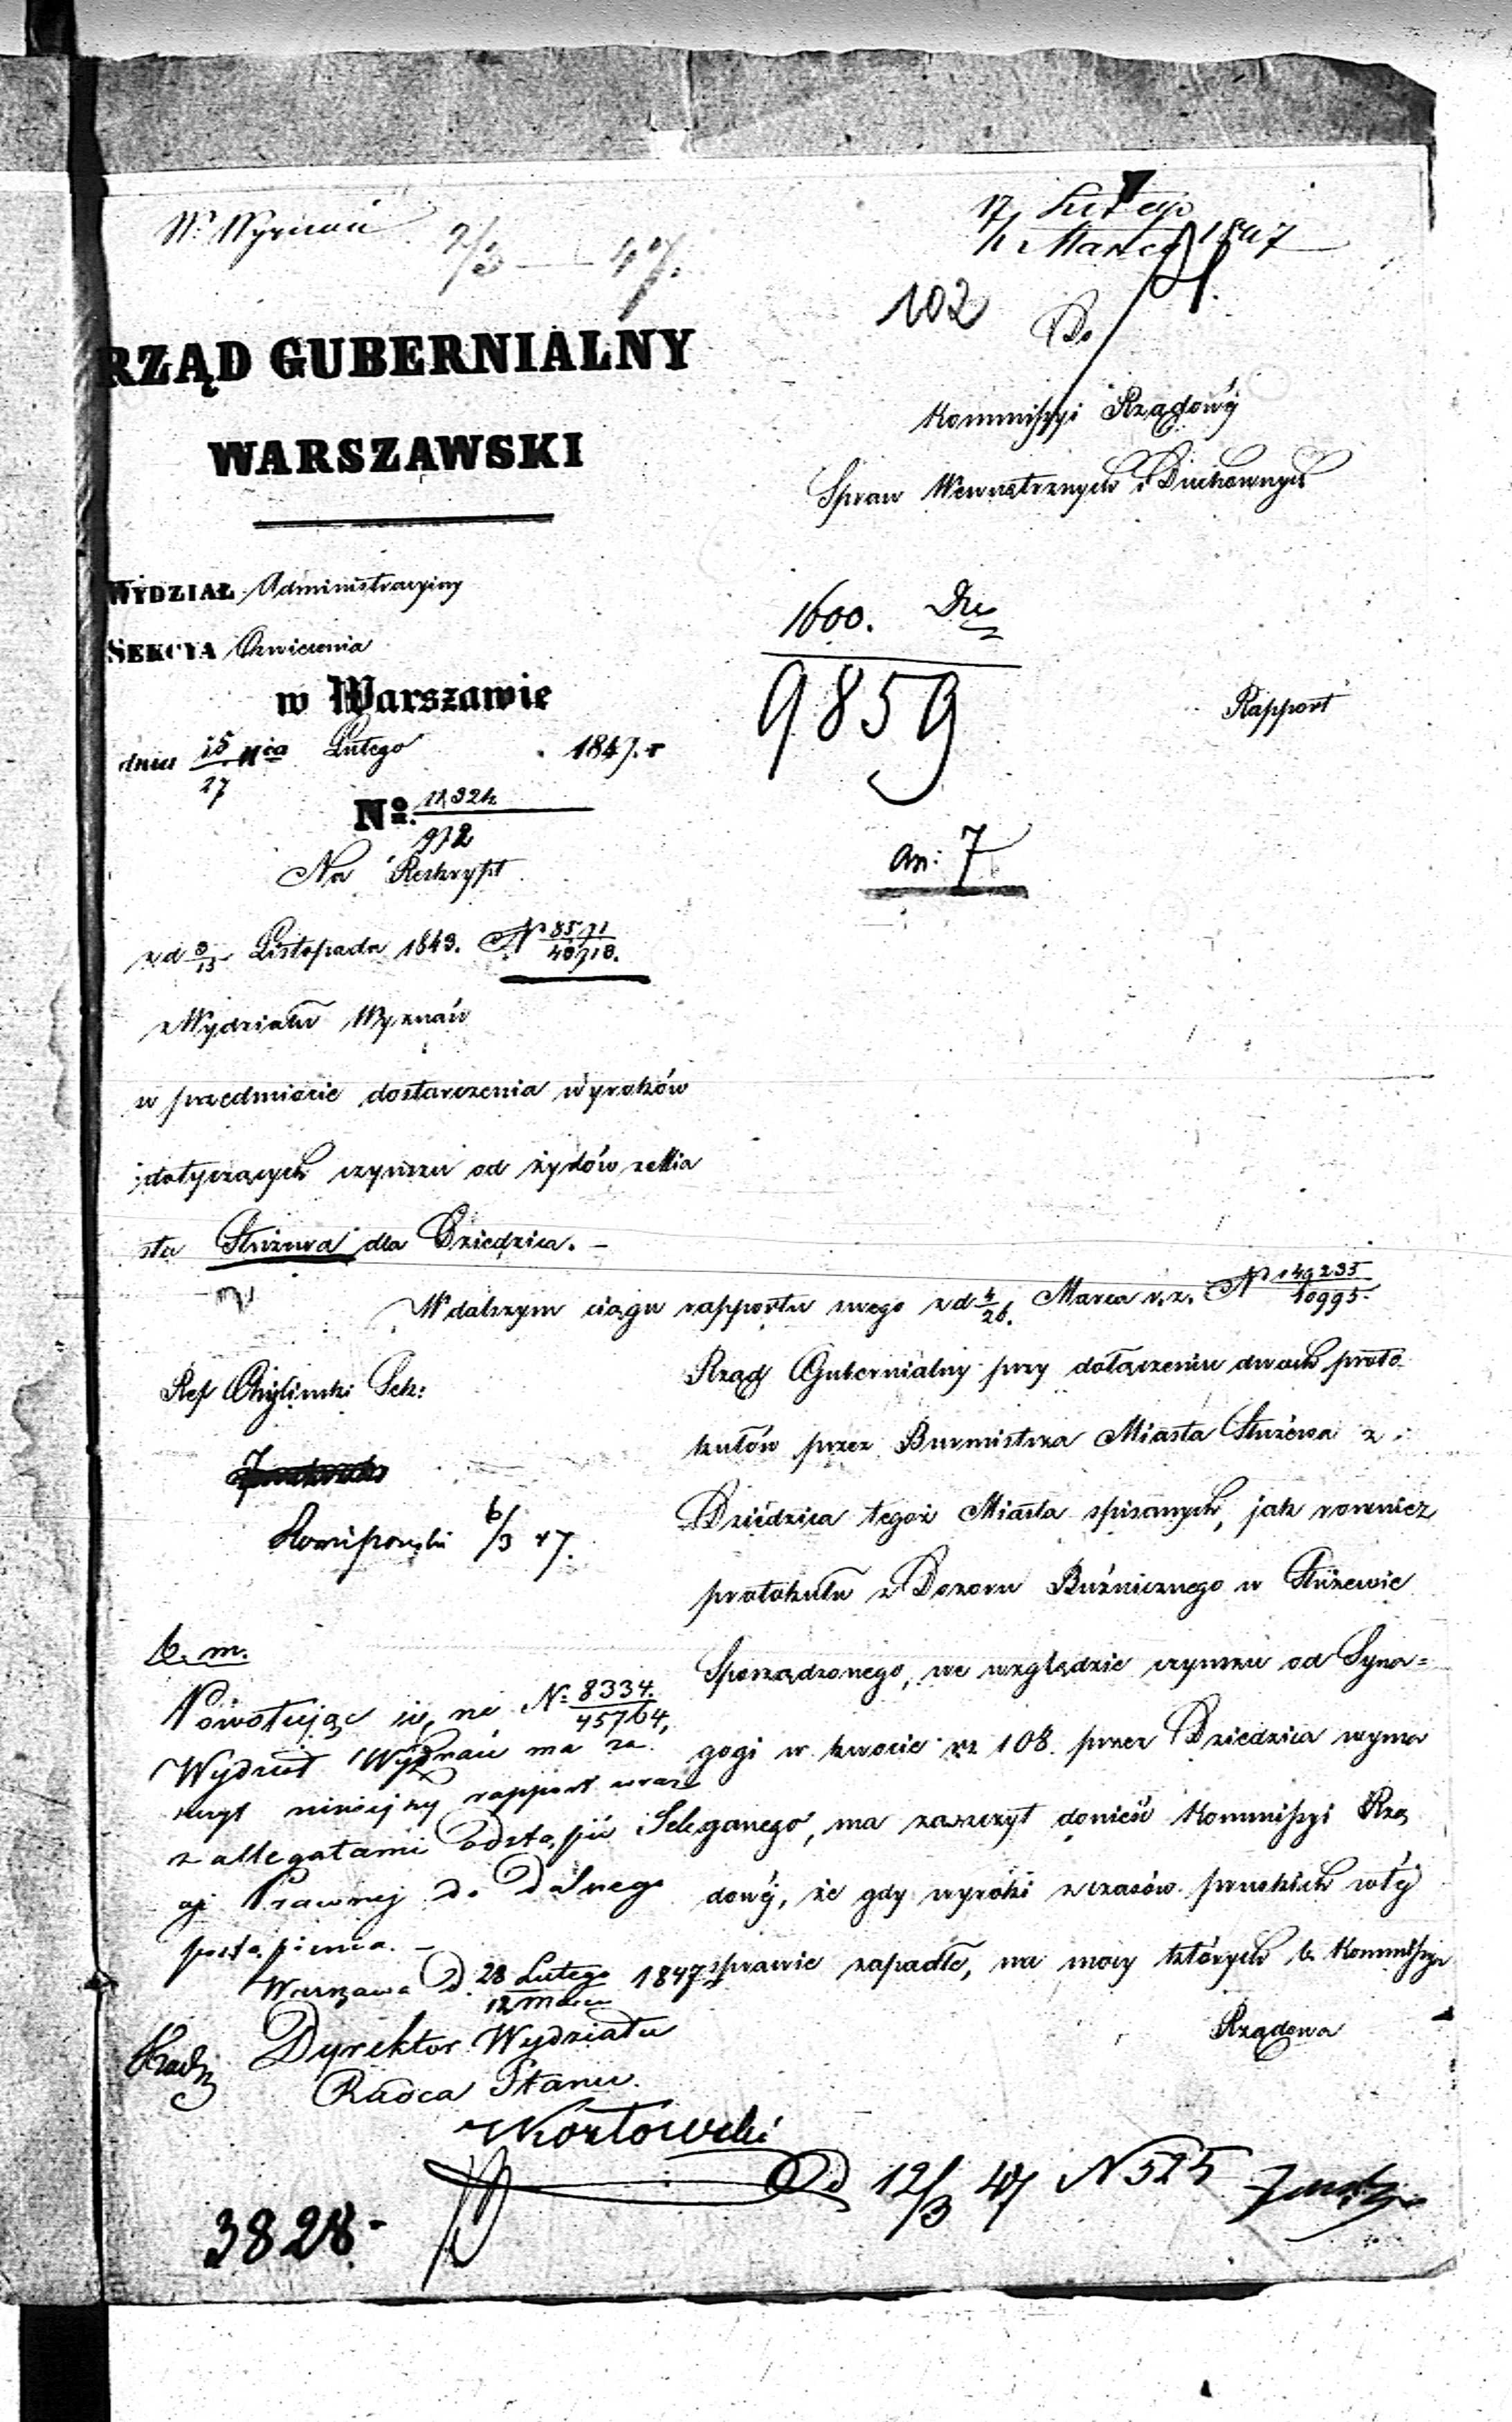 W. Wyznań
7/3 — 47.
17 Lutego
/1 Marca 1847
102
Do
Kommissyi Rządowéj
Spraw Wewnętrznych i Duchownych
RZĄD GUBERNIALNY
WARSZAWSKI
WYDZIAŁ Administracyiny
SEKCYA Oświecenia
w Warszawie
dnia 15/27 nia Lutego 1847. r
No.
972
Na Reskrypt
1600.
9859
an: 7
Rapport
z d 3/15 Listopada 1843. N 8571/48718.
z Wydziału Wyznań
w przedmiocie dostarczenia wyroków
dotyczących czynszu od żydów z Mia
sta Służewa dla Dziedzica. –
W dalszym ciągu rapportu swego z d Marca r. z. N 149235/10995.
Rząd Gubernialny przy dołączeniu dwóch proto
kułów przez Burmistrza Miasta Służewa z
Dziedzica tegoż Miasta spisanych, jak rownież
protokułu z Dozoru Bużnicznego w Służewie
Sporządzonego, we względzie czynszu od Syna=
gogi w kwocie rs 108. przez Dziedzica wyma
ganego, ma zaszczyt donieść Kommissyi Rzą
dowéj, że gdy wyroki z czasów pruskich w téj
sprawie zapadłe, na mocy których b. Kommissya
Rządowa
Ref Chyliński Sek:
6/3 47.
b. m.
Powołując się na N: 8334/45764,
Wydział Wyznań ma za
szczyt niniejszy rapport wraz
z allegatami odstąpić Sek
cyi Prawnej do dalszego
postąpienia. –
Warszawa d. 28 Lutego/12 Marca 1847 r
Dyrektor Wydziału
Radca Stanu.
Kozłowski
d 12/3 47 N 525
3828